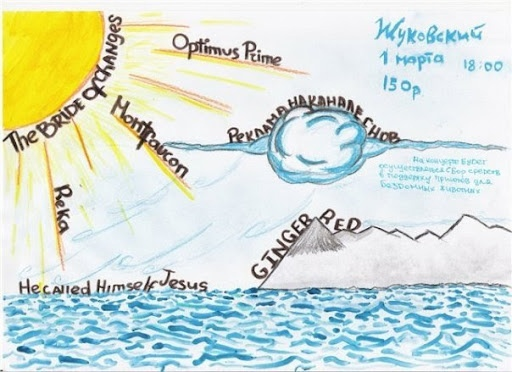 Жуковский
1 марта 18:00
150р
Optimus Prime
The BRIDE OF CHANGES
Montfaucon
РЕКЛАМА НА КАНАЛЕ СНОВ
На концерте будет
осуществляться сбор средств
в поддержку приютов для
бездомных животных
Река
GINGER RED
He called Himself Jesus